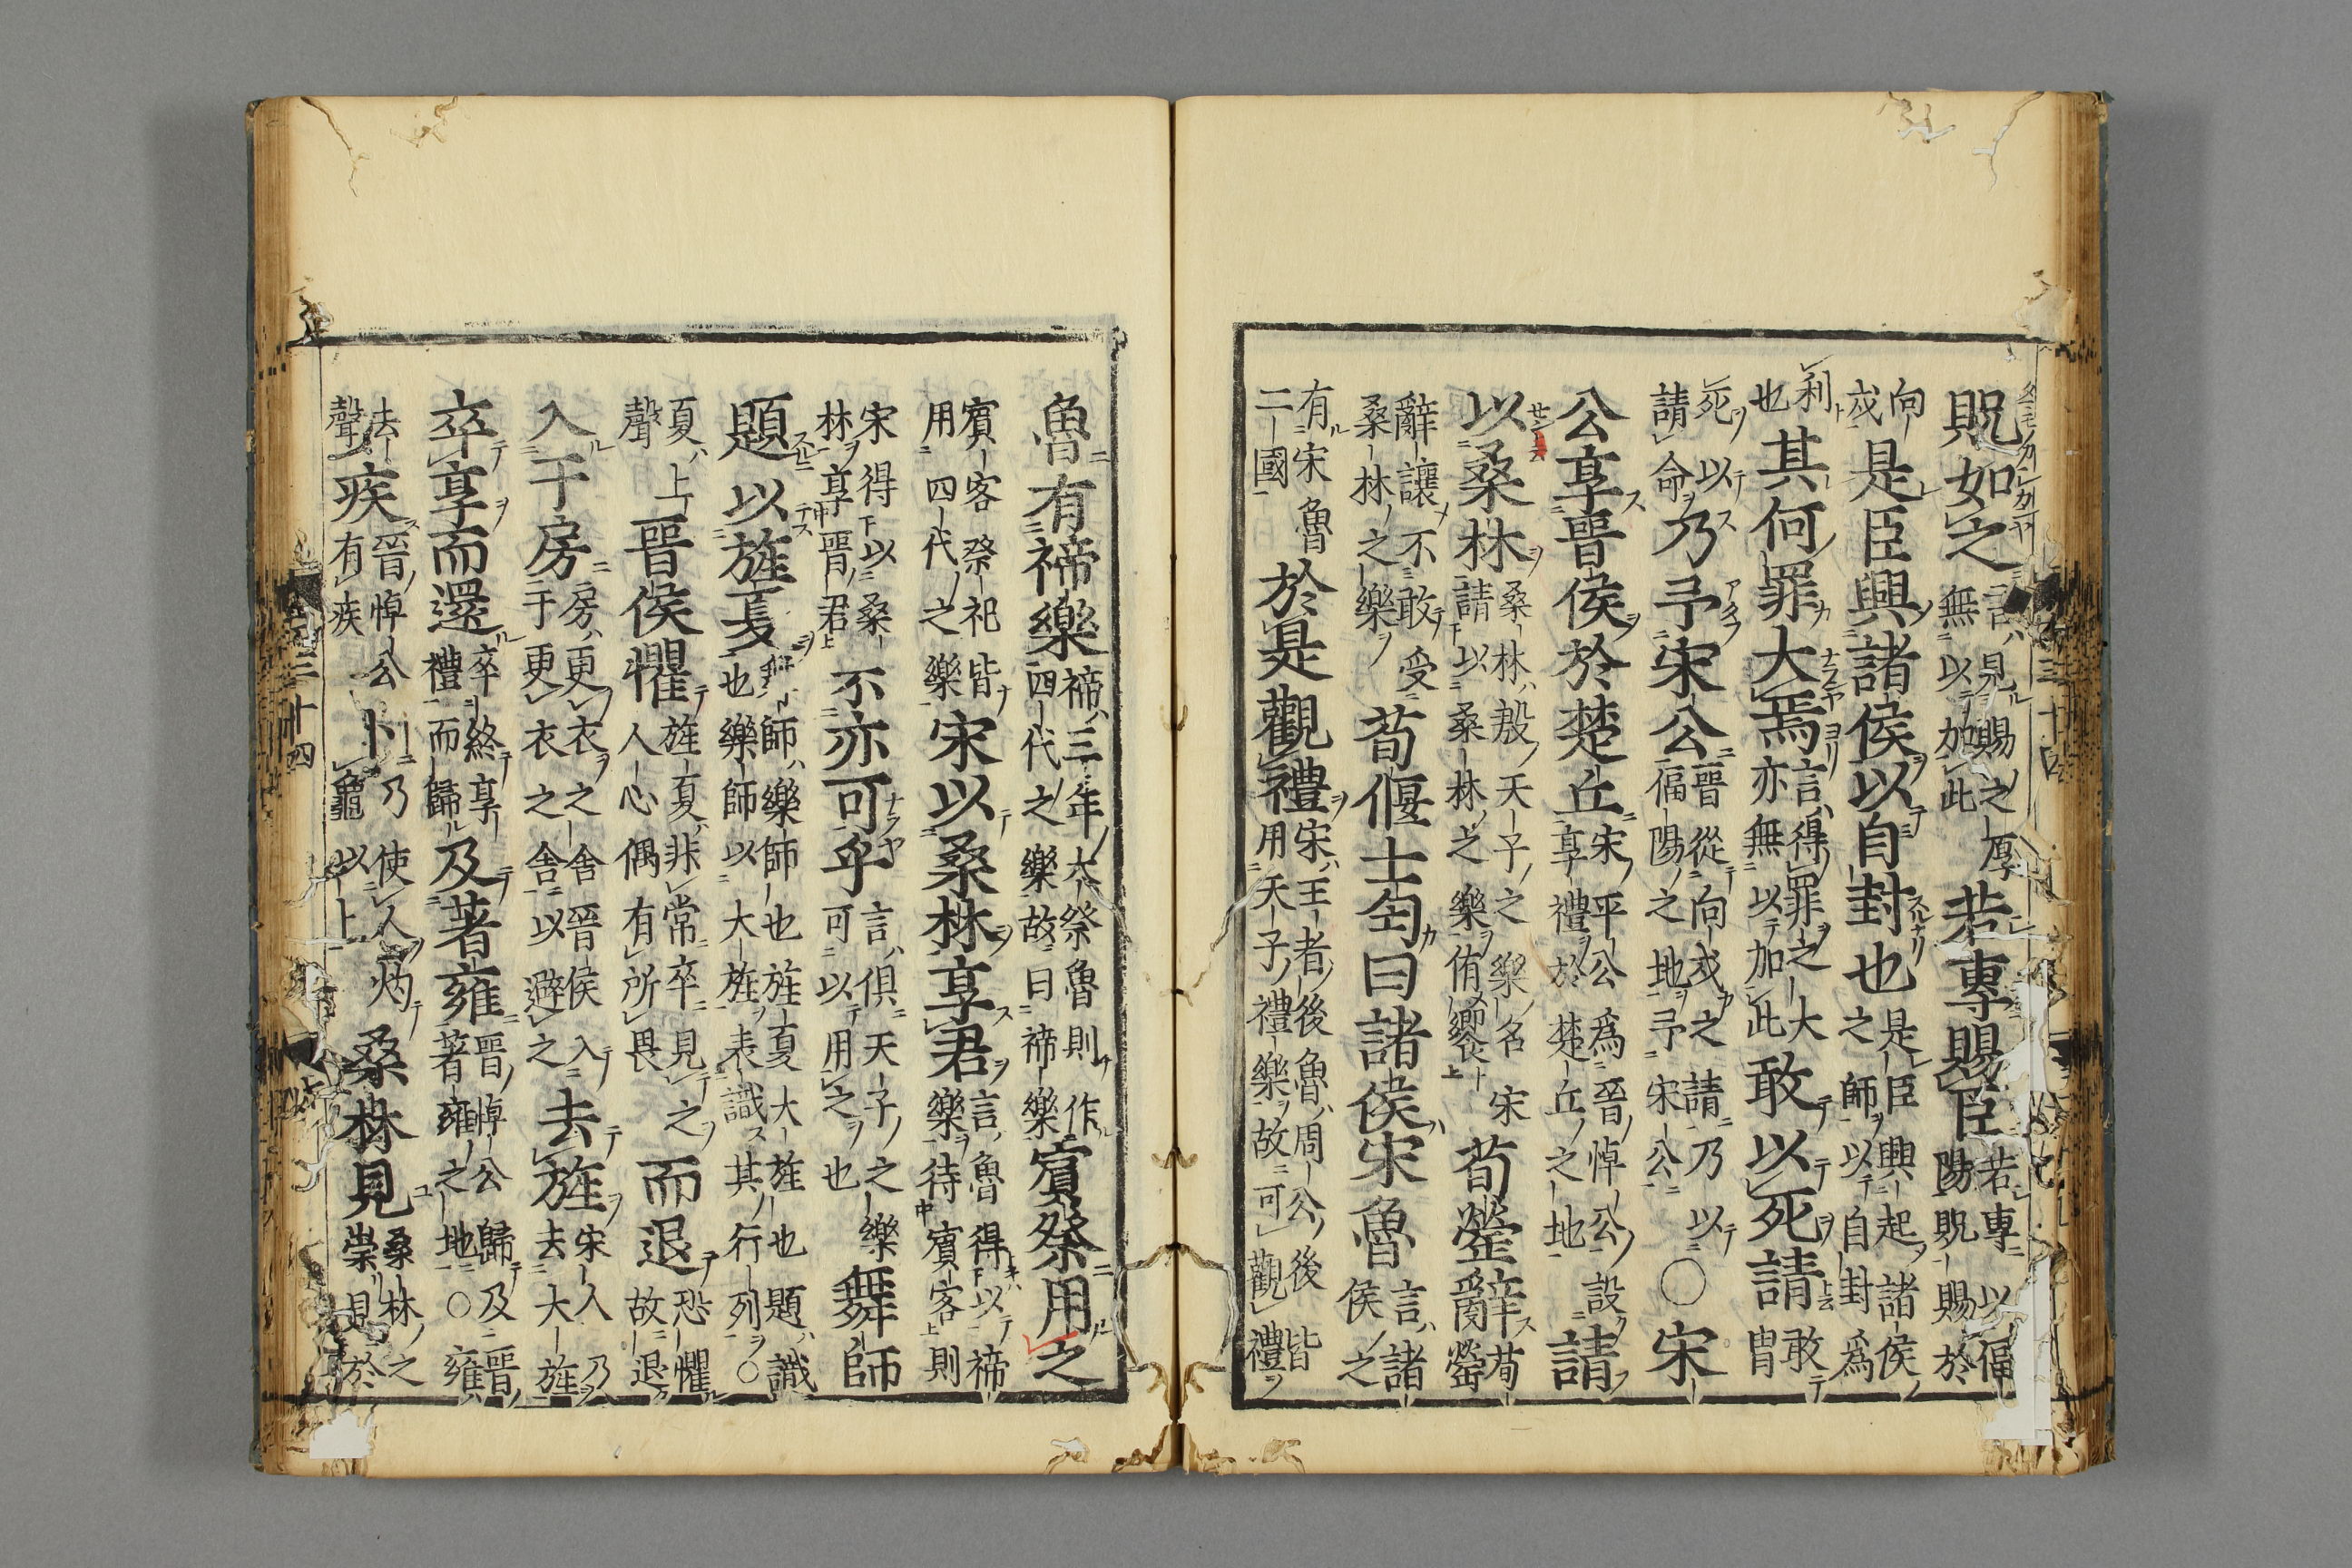 貺如之言見賜之厚無以加此若專賜臣若專以偪陽貺賜於
向戍是臣興諸侯以自封也是臣興起諸侯之師以自封爲
利也其何罪大焉言得罪之大亦無以加此敢以死請敢冑
死以請命乃予宋公晉從向戍之請乃以偪陽之地予宋公○宋
公享晉侯於楚丘宋平公爲晉悼公設享禮於楚丘之地請
以桑林桑林殷天子之樂名宋請以桑林之樂侑饗荀罃辭荀罃
辭讓不敢受桑林之樂荀偃士匄曰諸侯宋魯言諸侯之
有宋魯二國於是觀禮宋王者後魯周公後皆用天子禮樂故可觀禮
魯有禘樂禘三年大祭魯則作四代之樂故曰禘樂賓祭用之
賓客祭祀皆用四代之樂宋以桑林享君言魯得以禘樂待賓客則
宋得以桑林享晉君不亦可乎言俱天子之樂可以用之也舞師
題以旌夏師樂師也旌夏大旌也題識也樂師以大旌表識其行列○
夏上聲晉侯懼旌夏非常卒見之人心偶有所畏而退恐懼故退
入于房房更衣之舍晉侯入于更衣之舍以避之去旌宋人乃去大旌
卒享而還卒終享禮而歸及著雍晉悼公歸及晉著雍之地○雍
去聲疾晉悼公有疾卜乃使人灼龜以卜桑林見桑林之祟見於
三十四